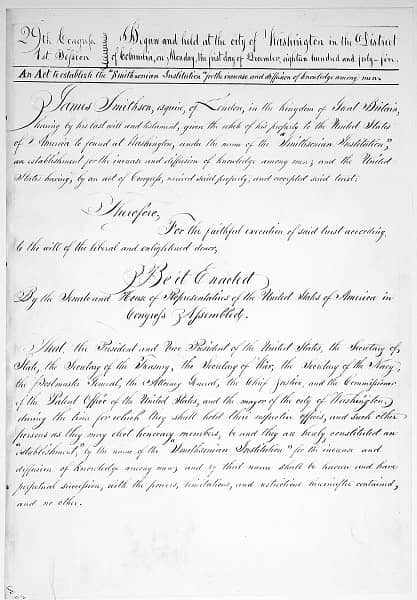 29th Congress } Begun and held at the city of Washington in the District
1st Session } of Columbia, on Monday, the first day of December, eighteen hundred and forty-five.
An Act to establish the "Smithsonian Institution," for the increase and diffusion of knowledge among men.
James Smithson, esquire, of London, in the kingdom of Great Britain,
having by his last will and testament, given the whole of his property to the United States
of America to found at Washington, under the name of the "Smithsonian Institution,"
an establishment for the increase and diffusion of knowledge among men; and the United
States having, by an act of Congress, received said property, and accepted said trust;
Therefore,
For the faithful execution of said trust according
to the will of the liberal and enlightened donor,
Be it Enacted
By the Senate and House of Representatives of the United States of America in
Congress Assembled,
That, the President and Vice President of the United States, the Secretary of
State, the Secretary of the Treasury, the Secretary of War, the Secretary of the Navy,
the Postmaster General, the Attorney General, the Chief Justice, and the Commissioner
of the Patent Office of the United States, and the mayor of the city of Washington,
during the time for which they shall hold their respective offices, and such other
persons as they may elect honorary members, be and they are hereby constituted an
"establishment," by the name of the "Smithsonian Institution" for the increase and
diffusion of knowledge among men; and by that name shall be known and have
perpetual succession, with the powers, limitations, and restrictions hereinafter contained,
and no other.